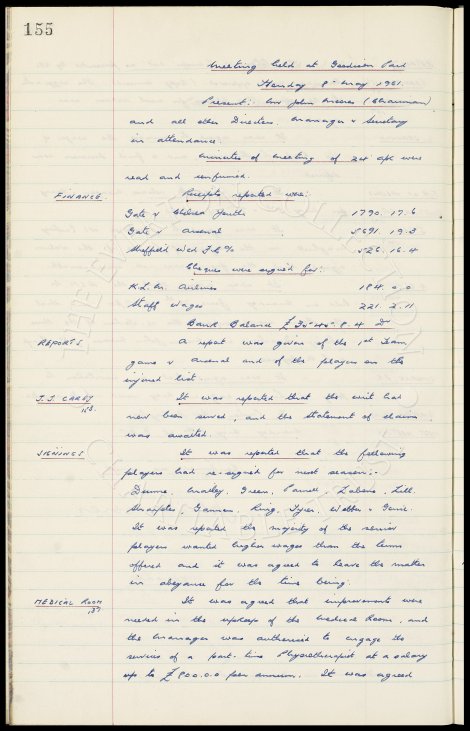 155
Meeting held at Goodison Park
Monday 8th May 1961.
Present: Mr John Moores (Chairman)
and all other Directors, Manager & Secretary
in attendance.
Minutes of meeting of 24th Apl were
read and confirmed.
FINANCE. Receipts reported were:
Gate v Chelsea Youths 1790. 17. 6
Gate v Arsenal 5691. 19. 3
Sheffield Wed F.C. % 526. 16. 4
Cheques were signed for:
K.L.M. Airlines 184. 0. 0
Staff Wages 221. 2. 11
Bank Balance £ 8. 4 Dr
REPORTS A report was given of the 1st Team
game v Arsenal and of the players on the
injured list.
J.J. CAREY It was reported that the writ had
158. now been served, and the statement of claim
was awaited.
SIGNINGS It was reported that the following
players had re-signed for next season:-
Dunne, Meagan, Green, Parnell, Labone, Lill,
Sharples, Gannon, King, Tyrer, Webber &
It was reported the majority of the senior
players wanted higher wages than the terms
offered and it was agreed to leave the matter
in abeyance for the time being.
MEDICAL ROOM It was agreed that improvements were
137 needed in the upkeep of the Medical Room, and
the Manager was authorised to engage the
services of a part-time Physiotherapist at a salary
up to £800.0.0 per annum. It was agreed
THE EVERTON COLLECTION